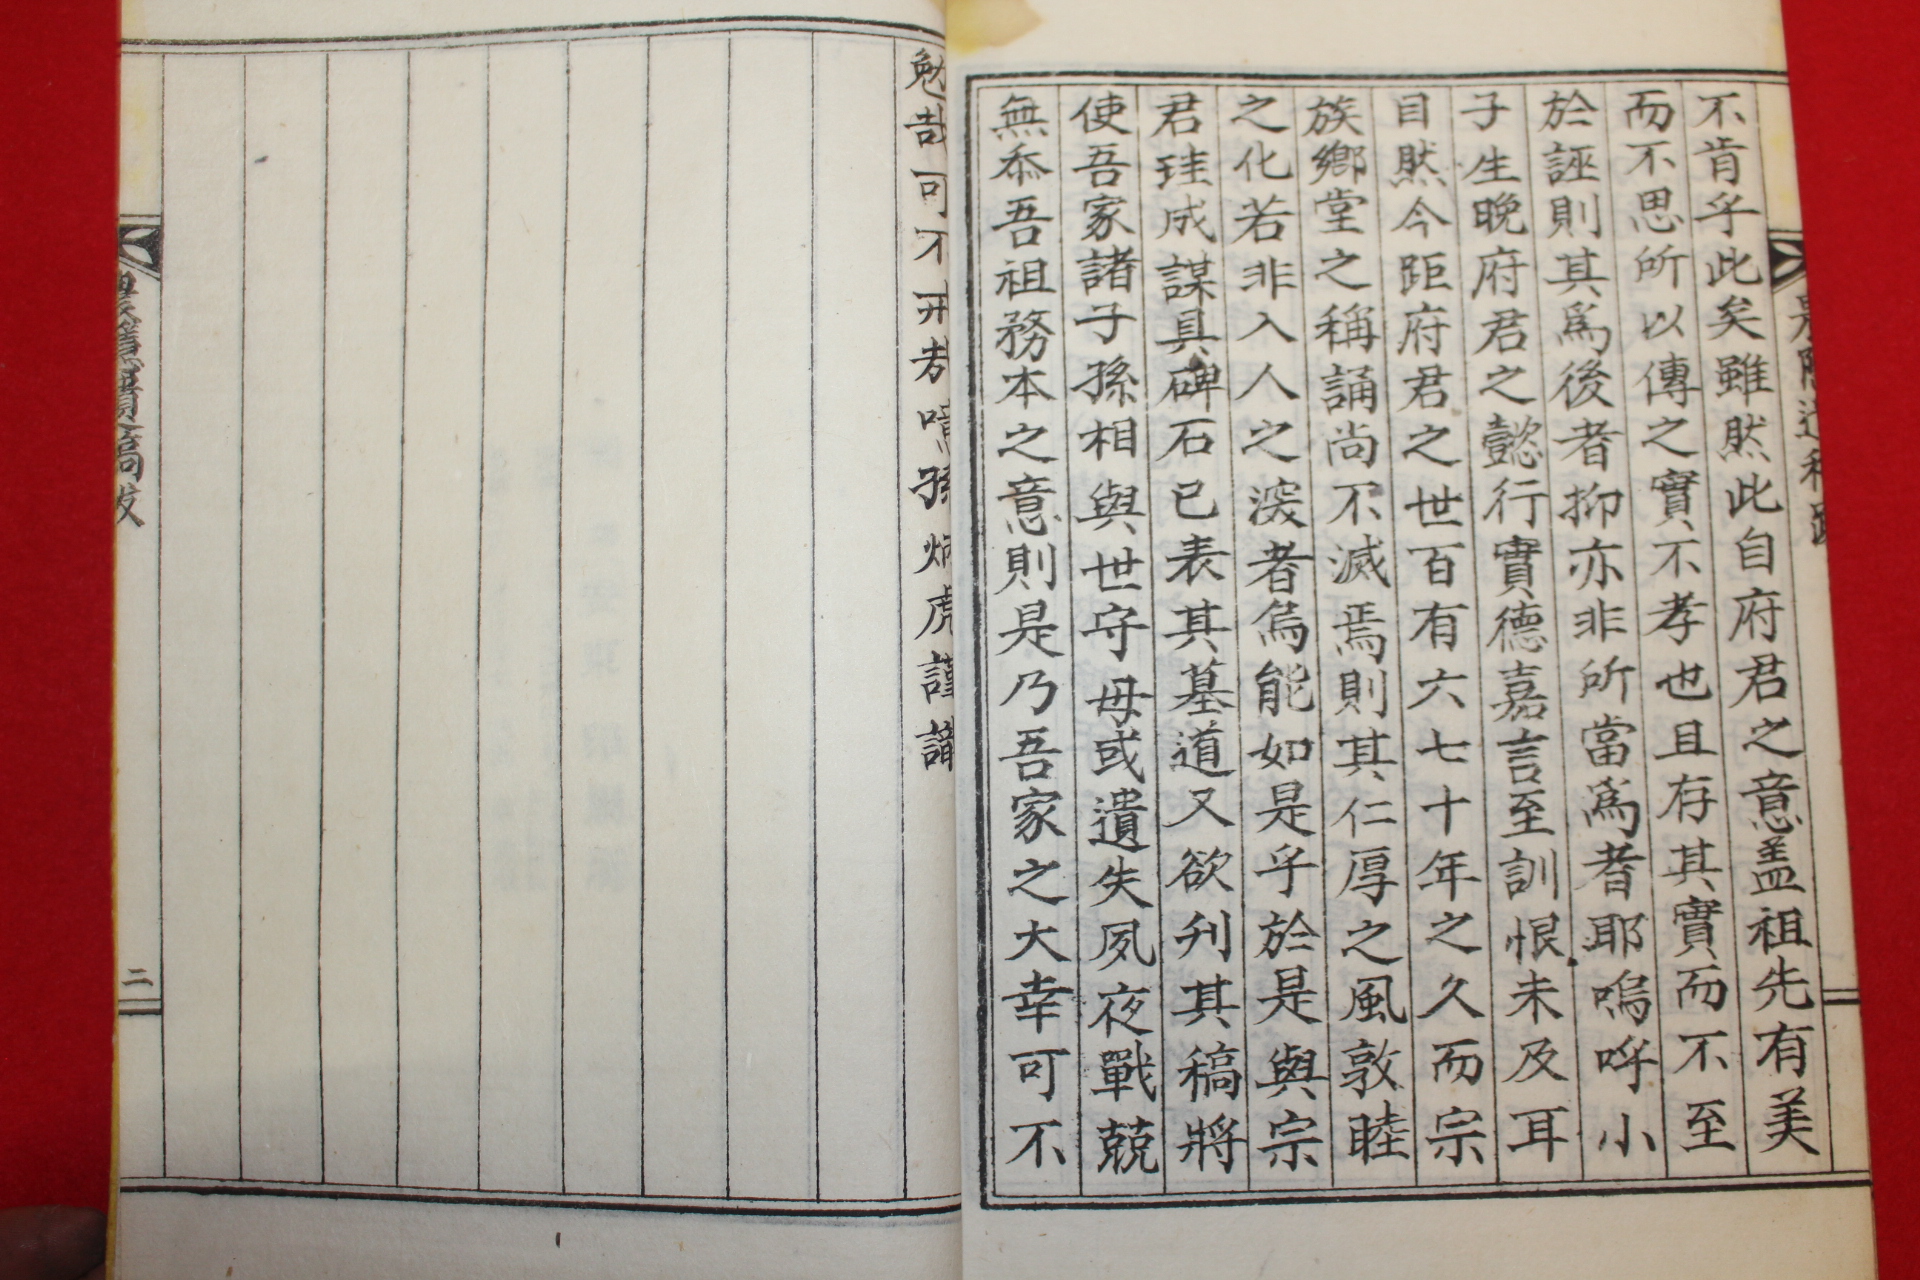 不肯乎此矣雖然此自府君之意盖祖先有美
而不思所以傳之實不孝也且存其實而不至
於誣則其爲後者抑亦非所當爲者耶嗚呼小
子生晩府君之懿行實德嘉言至訓恨未及耳
目然今距府君之世百有六七十年之久而宗
族鄉堂之稱誦尚不滅焉則其仁厚之風敦睦
之化若非入人之深者烏能如是乎於是與宗
君珪成謀具碑石已表其墓道又欲刋其稿將
使吾家諸子孫相與世守毋或遺失夙夜戰兢
無忝吾祖務本之意則是乃吾家之大幸可不
勉哉可不勗哉 孫炳虎謹識
遺稿跋
二